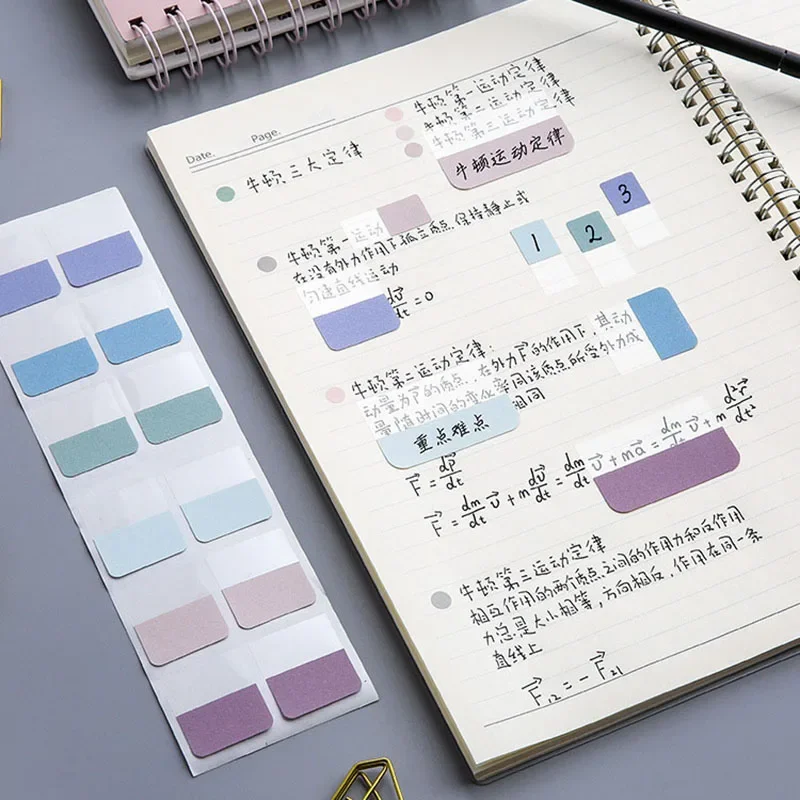 Date.
Page.
牛顿三大定律
牛顿第一运动定律
牛顿第二运动定律
牛顿第三运动定律
牛顿运动定律
1
2
3
牛顿第一运动
在没有外力作用下孤立质点,保持静止或
匀速直线运动
= 0
牛顿第二运动定律:
动量为P的质点,在外力F的作用下,其动
量随时间的变化率同该质点所受外力成
相同
重点难点
F = dP/dt
F = dm/dt υ + m dυ/dt = dm/dt υ + ma = dm/dt υ + m d²r/dt²
牛顿第三运动定律
相互作用的两个质点之间的作用力和反作用
力总是大小相等,方向相反,作用在同一条
直线上
F₁₂ = - F₂₁